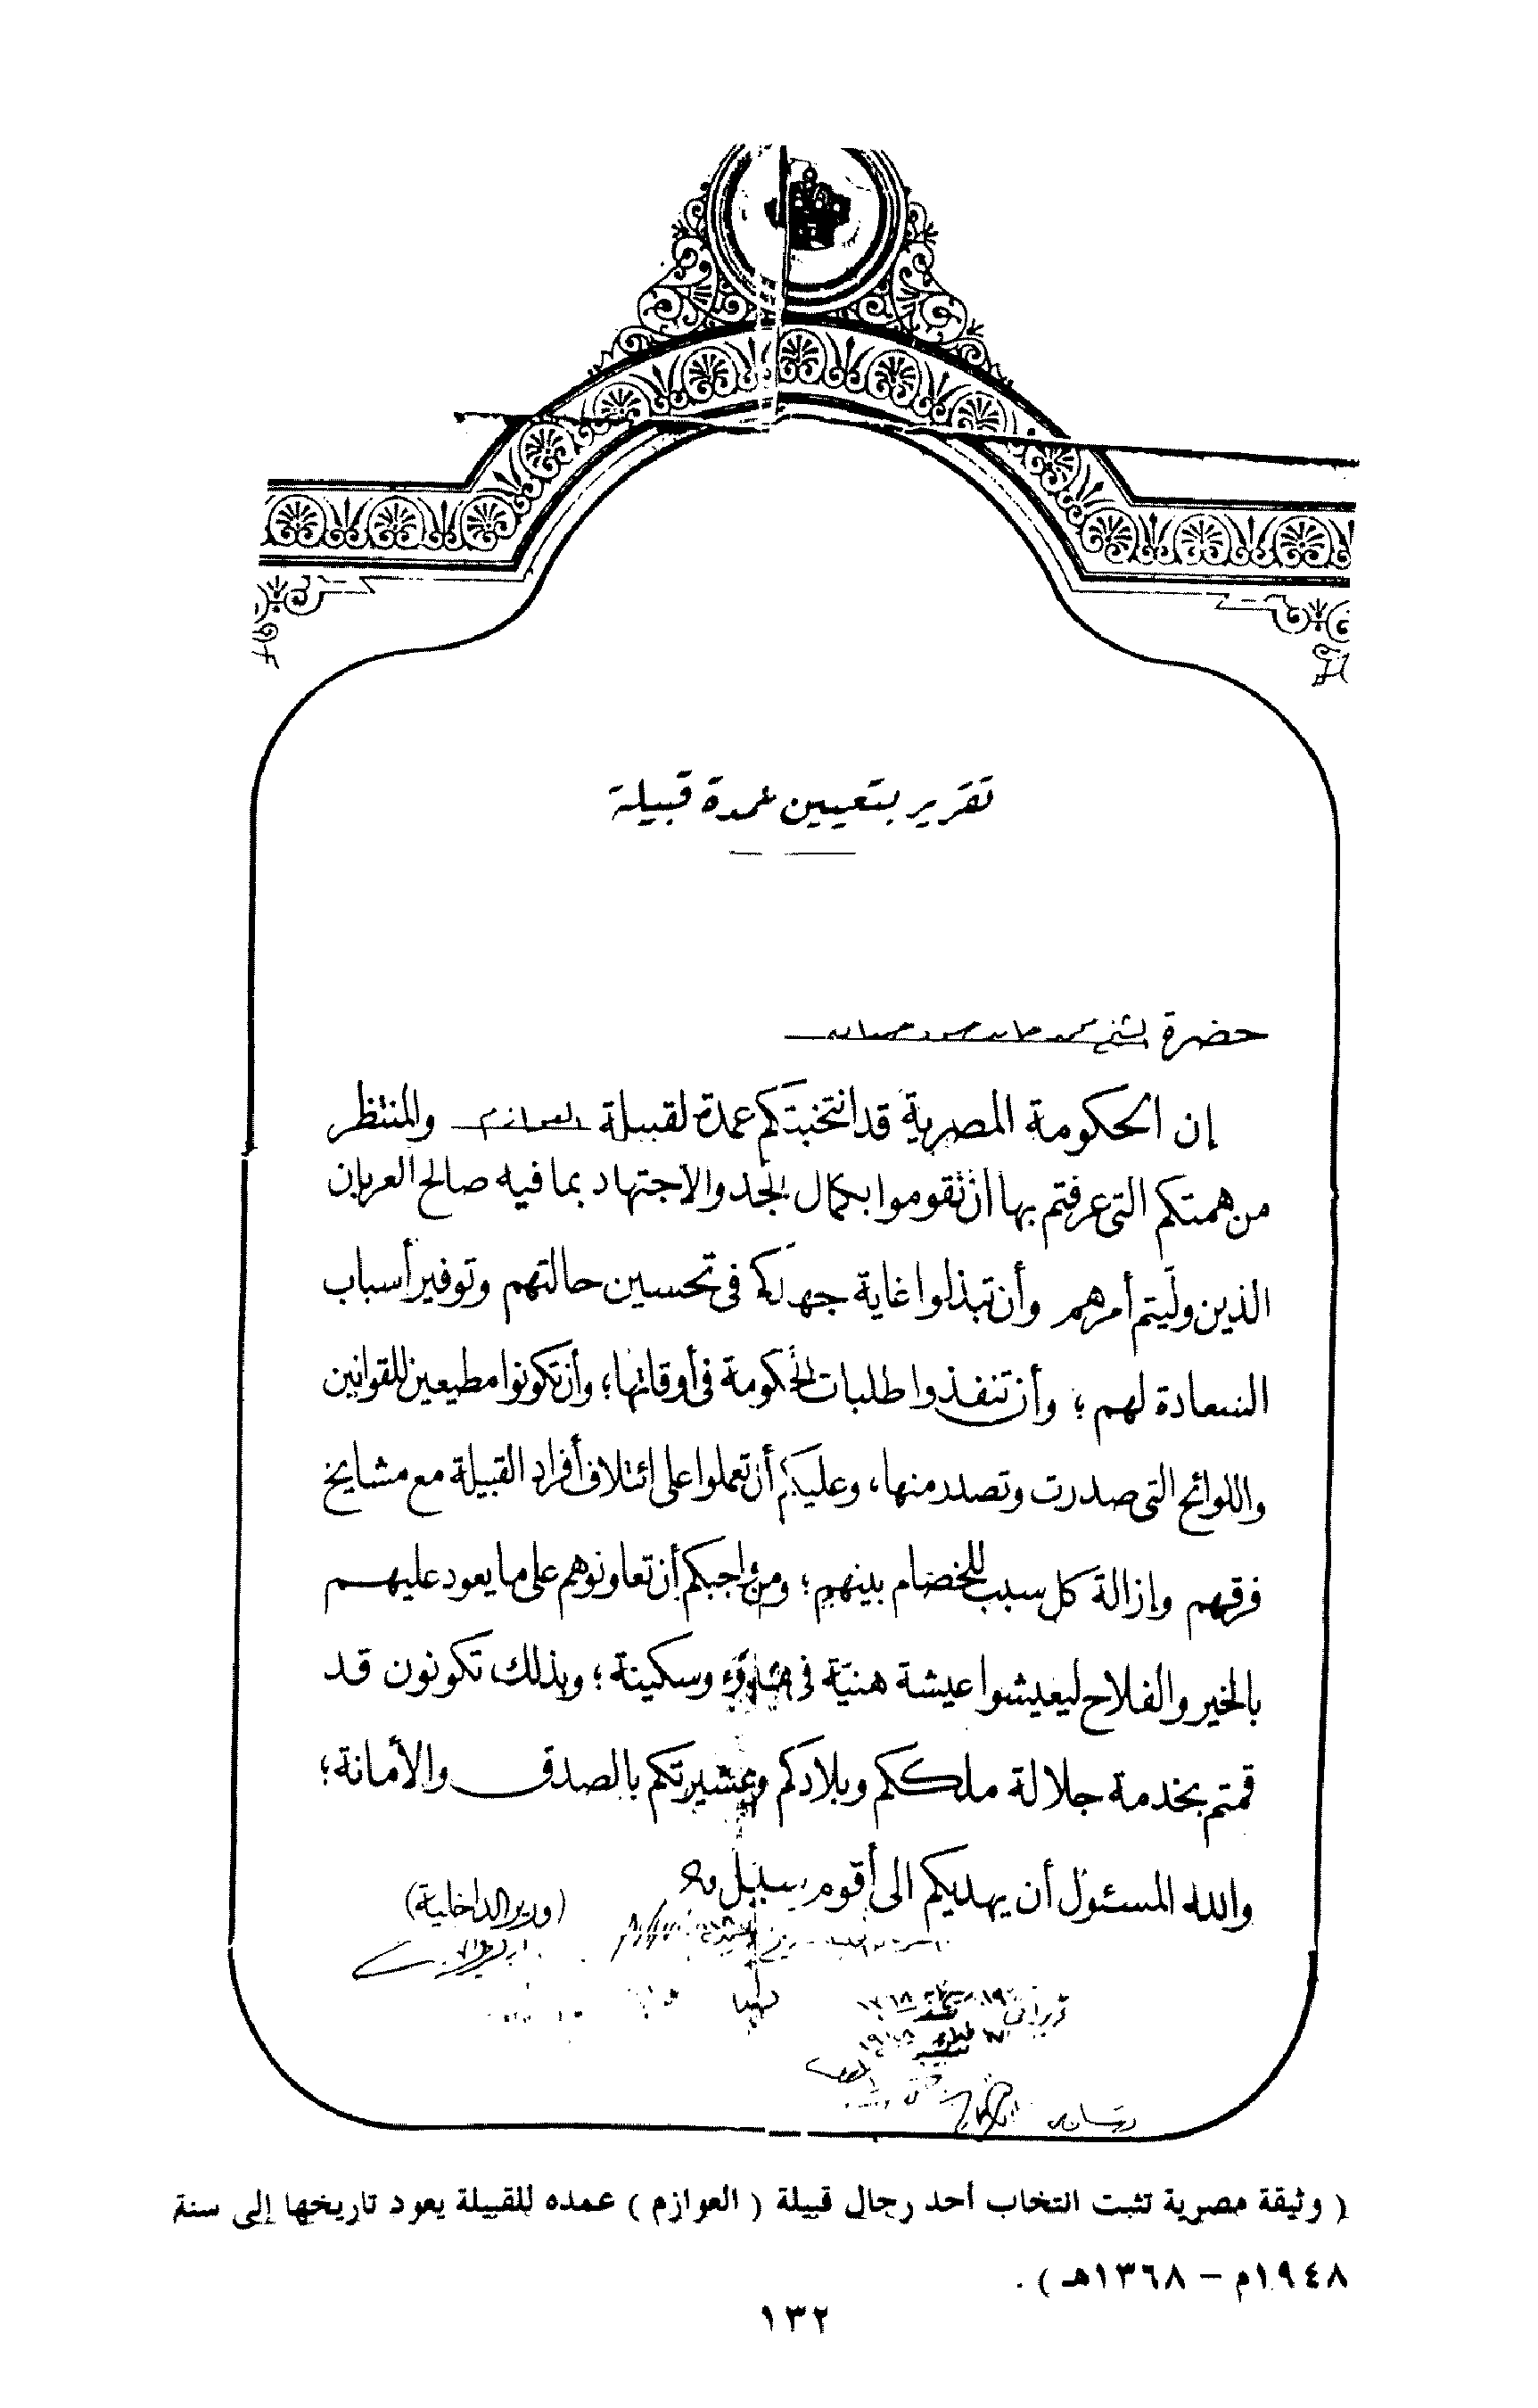 تقرير بتعيين عمدة قبيلة
حضرة الشيخ محمد حامد
إن الحكومة المصرية قد انتخبتكم عمدة لقبيلة العوازم والمنتظر
من همتكم التى عرفتم بها ان تقوموا بكمال الجد والاجتهاد بما فيه صالح العربان
الذين وليتم أمرهم وأن تبذلوا غاية جهدكم فى تحسين حالتهم وتوفير أسباب
السعادة لهم ؛ وأن تنفذوا طلبات الحكومة فى أوقاتها؛ وأن تكونوا مطيعين للقوانين
واللوائح التى صدرت وتصدر منها، وعليكم أن تعملوا على ائتلاف أفراد القبيلة مع مشايخ
فرقهم وإزالة كل سبب للخصام بينهم ؛ ومن واجبكم أن تعاونوهم على ما يعود عليهم
بالخير والفلاح ليعيشوا عيشة هنيّة فى هدوء وسكينة ؛ وبذلك تكونون قد
قمتم بخدمة جلالة ملككم وبلادكم وعشيرتكم بالصدق والأمانة؛
والله المسئول أن يهديكم الى أقوم سبيل
(وزير الداخلية)
( وثيقة مصرية تثبت انتخاب أحد رجال قبيلة ( العوازم ) عمده للقبيلة يعود تاريخها إلى سنة
١٩٤٨م – ١٣٦٨هـ ) .
١٣٢